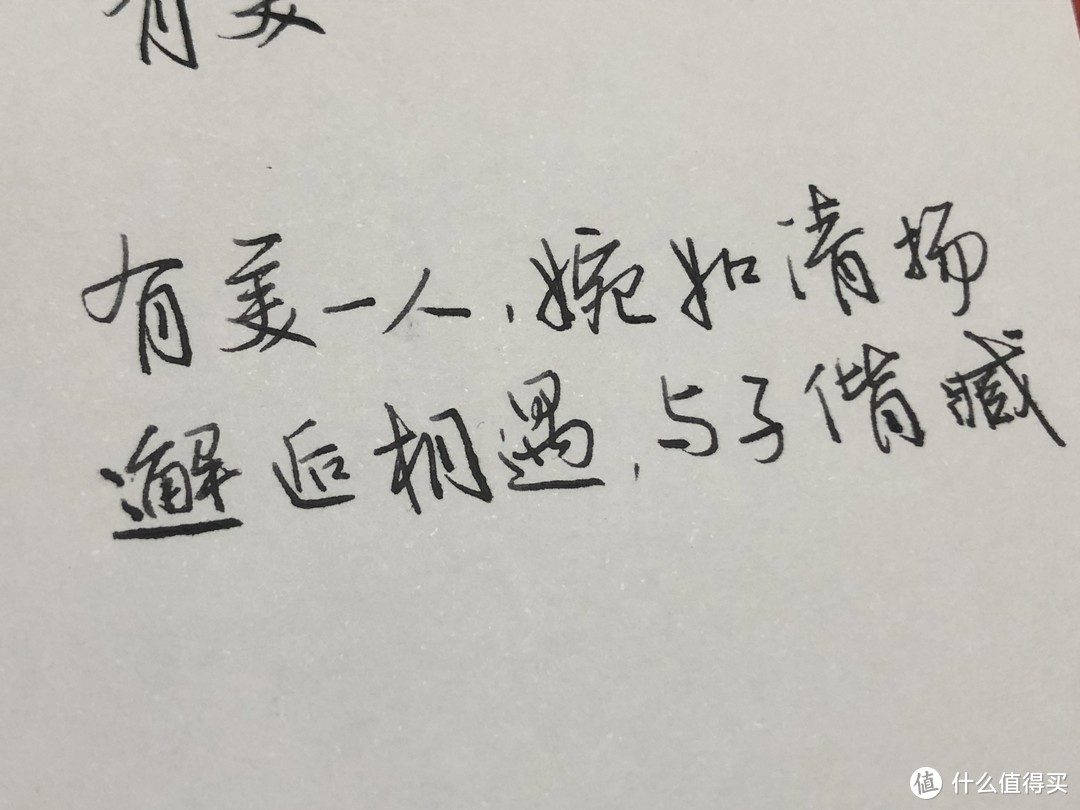 有美
有美一人,婉如清扬
邂逅相遇,与子偕臧
值 什么值得买